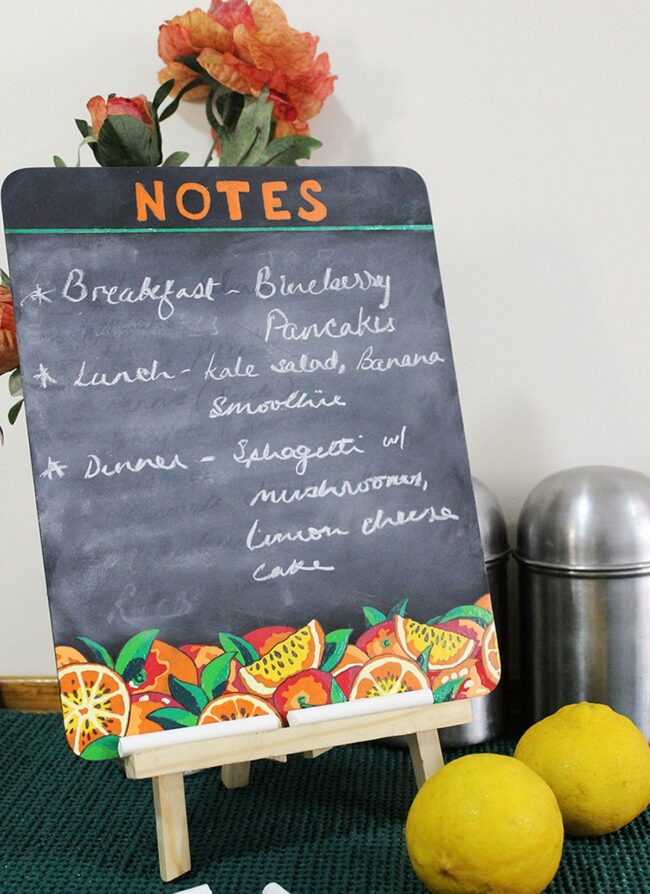 NOTES
* Breakfast - Blueberry
Pancakes
* Lunch - Kale salad, Banana
Smoothie
* Dinner - Sphagetti w/
mushrooms,
Limon cheese
cake